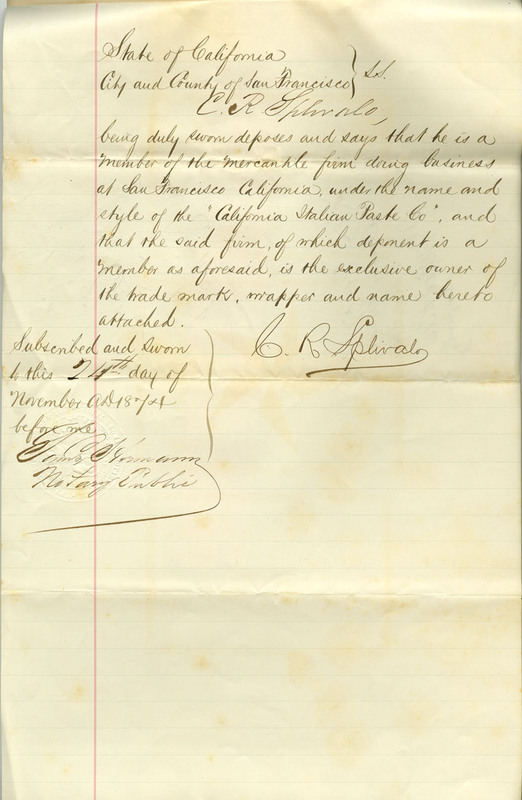 State of California
City and County of San Francisco } S.S.
C. R. Splivalo,
being duly sworn deposes and says that he is a
member of the mercantile firm doing business
at San Francisco California, under the name and
style of the "California Italian Paste Co", and
that the said firm, of which deponent is a
member as aforesaid, is the exclusive owner of
the trade mark, wrapper and name hereto
attached.
C. R. Splivalo
Subscribed and sworn
to this 24th day of
November A.D. 1874
before me
Notary Public